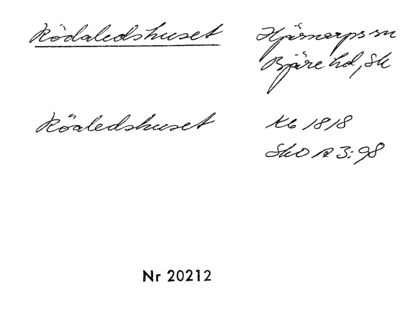 Rödaledshuset
Hjärnarps sn
Bjäre hd, Sk
Röaledshuset
Kb 1818
SkO A 3:98
Nr 20212